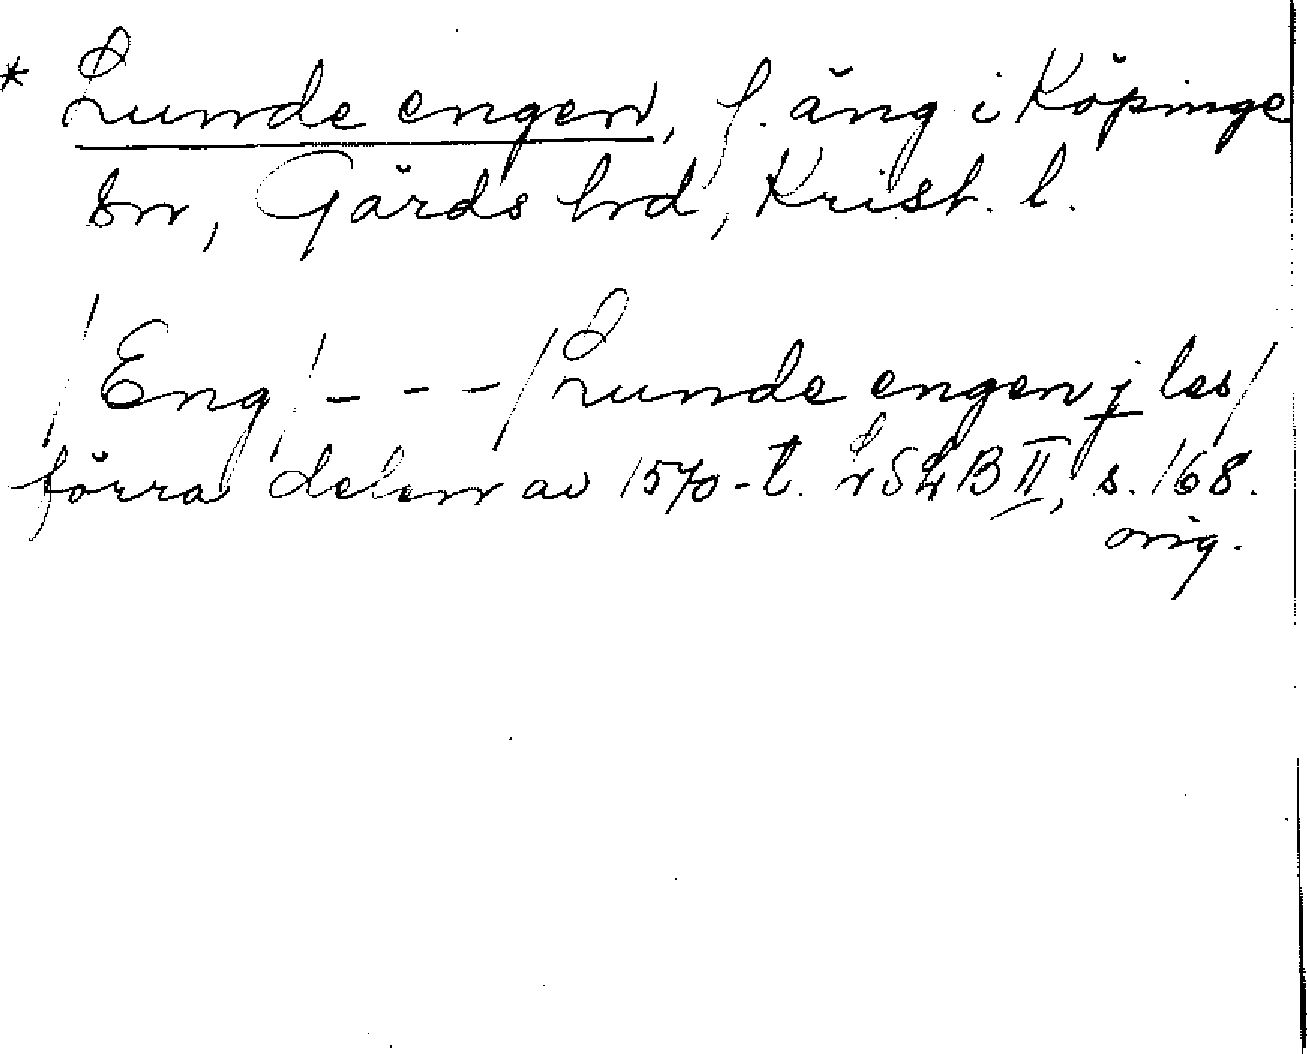 * Lunde engen, f. äng i Köpinge
sn, Gärds hrd, Krist. l.
/Eng/ - - - /Lunde engen j les/
förra delen av 1570-t. LSLB II, s. 168.
orig.